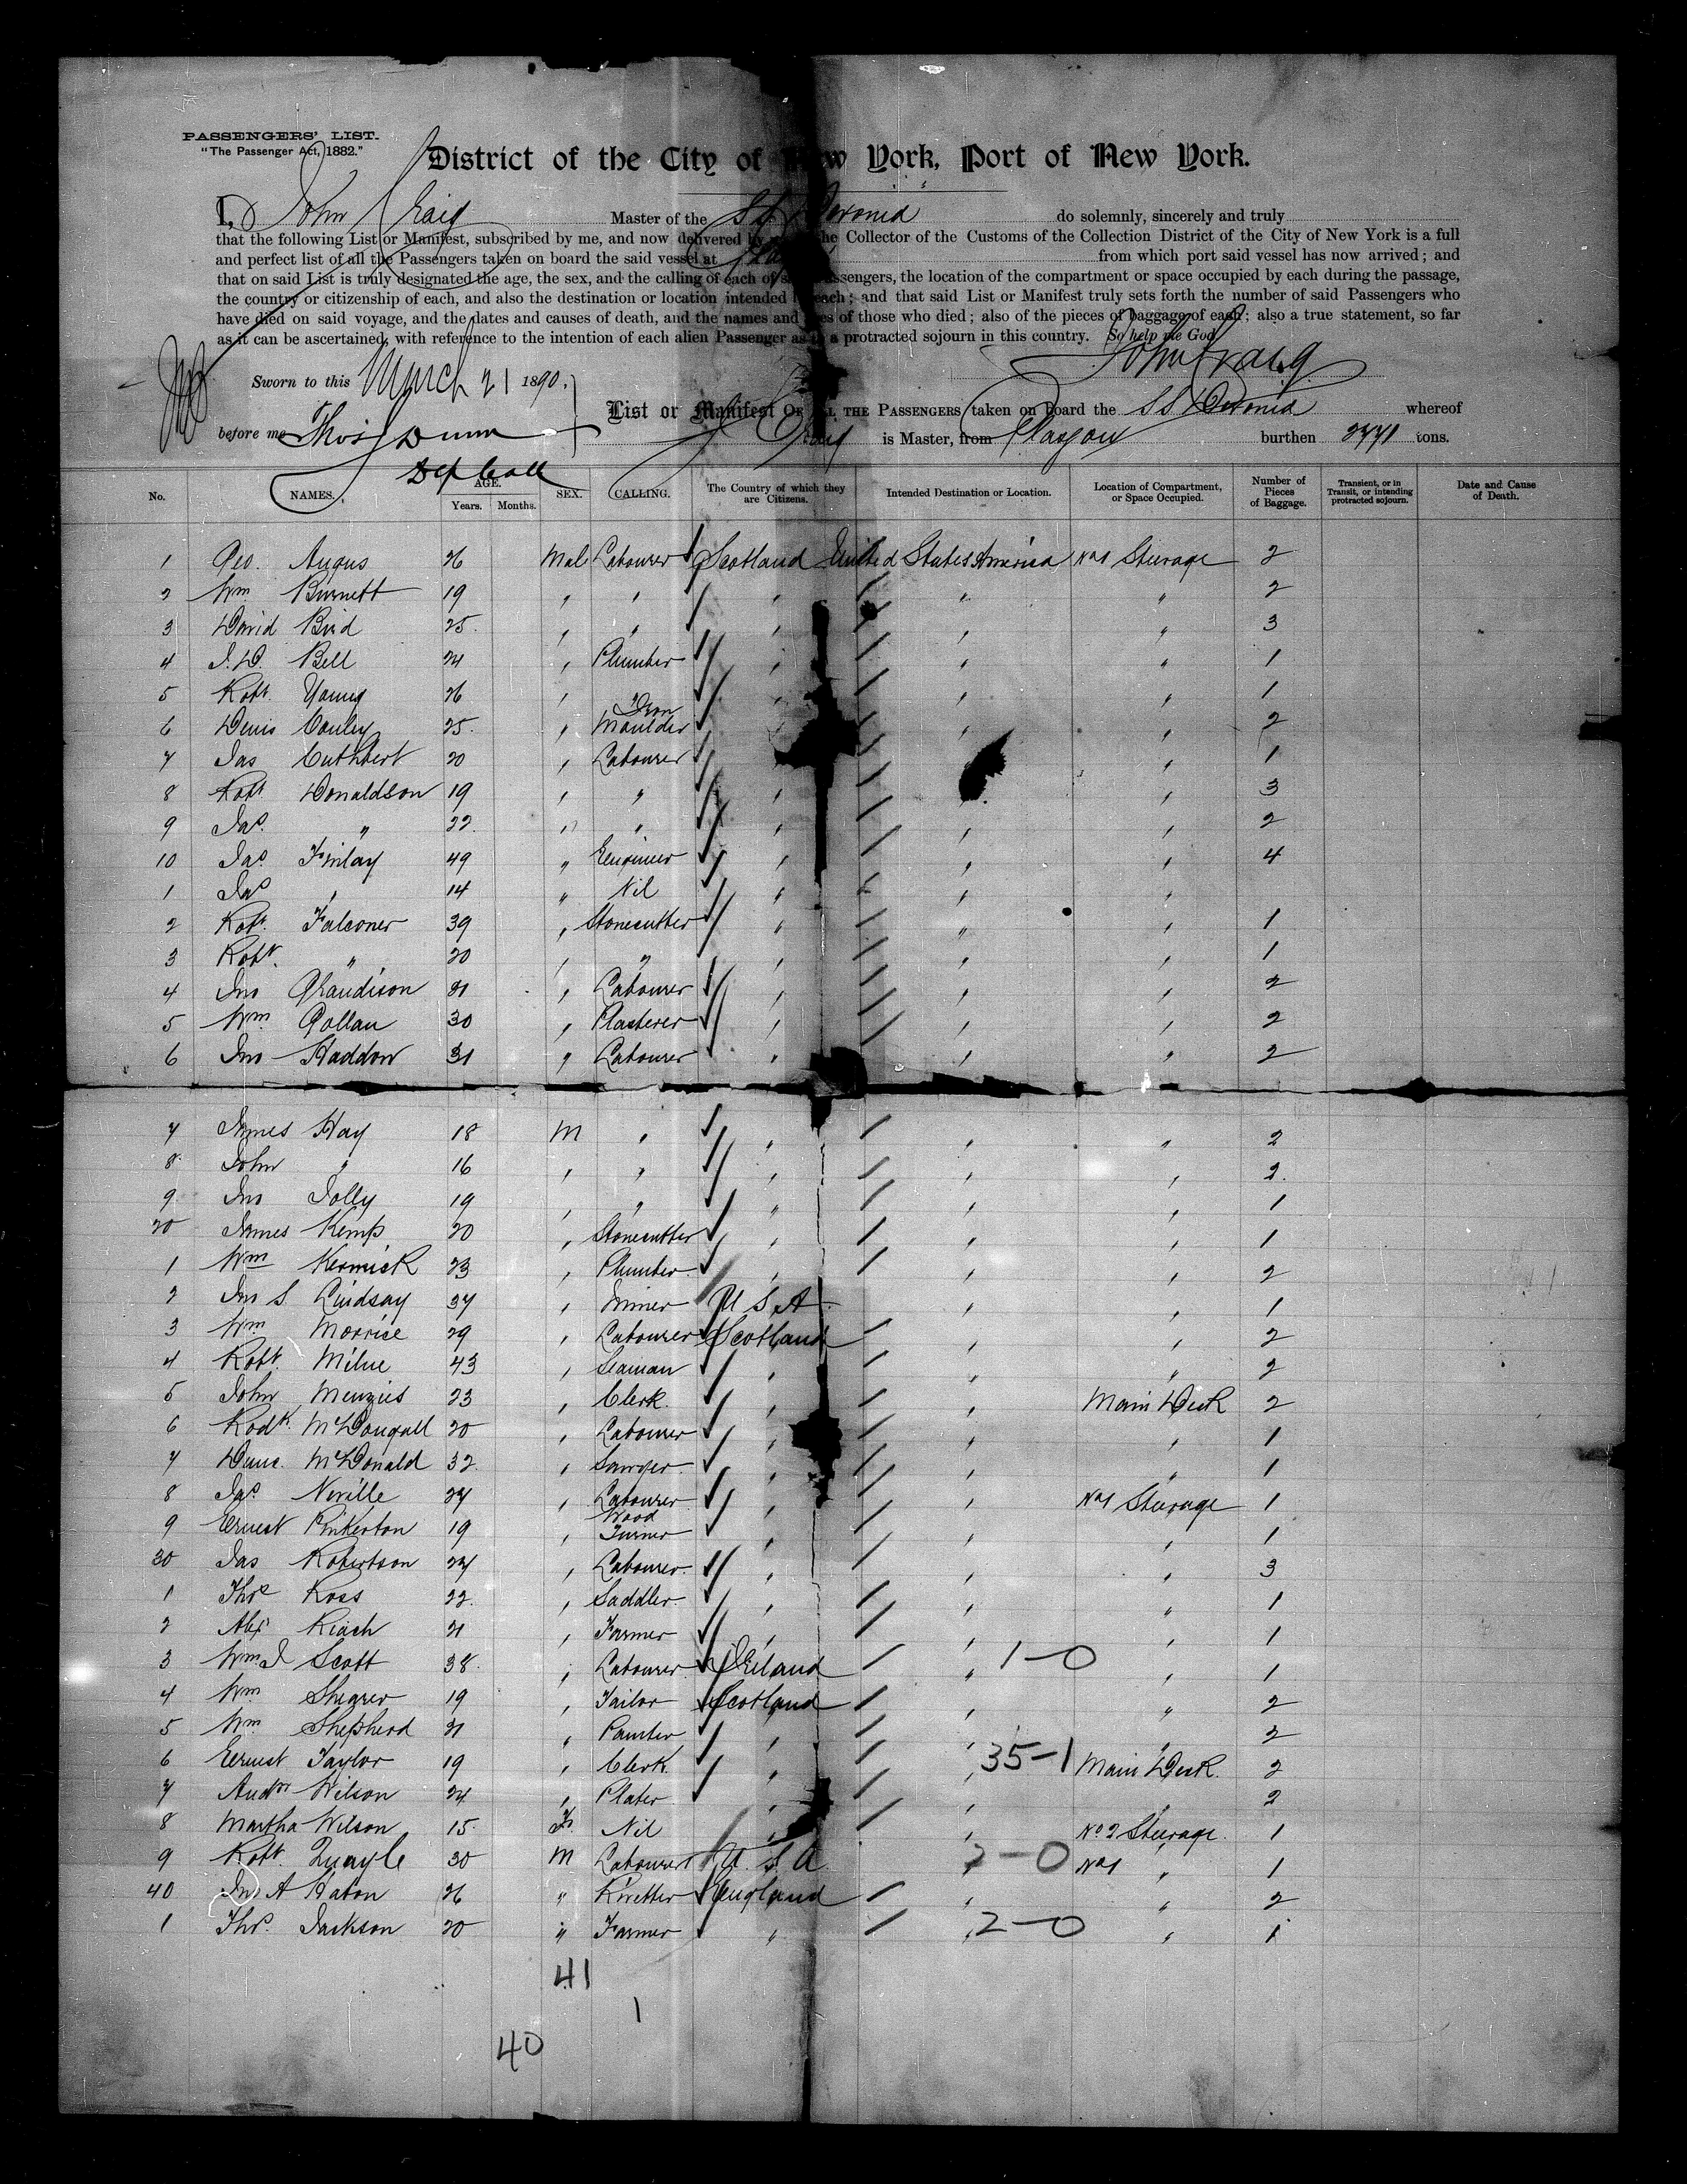 PASSENGERS' LIST.
"The Passenger Act, 1882."
District of the City of New York, Port of New York.
I, John Craig Master of the SS Devonia do solemnly, sincerely and truly
that the following List or Manifest, subscribed by me, and now delivered by me to the Collector of the Customs of the Collection District of the City of New York is a full
and perfect list of all the Passengers taken on board the said vessel at from which port said vessel has now arrived; and
that on said List is truly designated the age, the sex, and the calling of each of said Passengers, the location of the compartment or space occupied by each during the passage,
the country or citizenship of each, and also the destination or location intended by each; and that said List or Manifest truly sets forth the number of said Passengers who
have died on said voyage, and the dates and causes of death, and the names and ages of those who died; also of the pieces of baggage of each; also a true statement, so far
as it can be ascertained, with reference to the intention of each alien Passenger as to a protracted sojourn in this country. So help me God
John Craig
Sworn to this March 21 1890.
before me Thos J Dunn
Dep Coll
List or Manifest OF ALL THE PASSENGERS taken on board the SS Devonia whereof
J Craig is Master, from Glasgow burthen 2771 tons.
No. NAMES. AGE. Years. Months. SEX. CALLING. The Country of which they are Citizens. Intended Destination or Location. Location of Compartment, or Space Occupied. Number of Pieces of Baggage. Transient, or in Transit, or intending protracted sojourn. Date and Cause of Death.
1 Geo. Angus 26 Male Labourer Scotland United States America No1 Steerage 2
2 Wm Burnett 19 " " " " " 2
3 David Bird 25 " " " " " 3
4 J. D. Bell 24 " Plumber " " " 1
5 Robt. Young 26 " " " " " 1
6 Denis Conley 25 " Iron Moulder " " " 2
7 Jas Cuthbert 20 " Labourer " " " 1
8 Robt Donaldson 19 " " " " " 3
9 Jas. " 22 " " " " " 2
10 Jas Finlay 49 " Engineer " " " 4
1 Jas " 14 " Nil " " "
2 Robt. Falconer 39 " Stonecutter " " " 1
3 Robt. " 20 " " " " " 1
4 Jno Grandison 21 " Labourer " " " 2
5 Wm Gollan 30 " Plasterer " " " 2
6 Jno Haddow 31 " Labourer " " " 2
7 James Hay 18 M " " " " 2
8 John " 16 " " " " " 2
9 Jno Jolly 19 " " " " " 1
20 James Kemp 20 " Stonecutter " " " 1
1 Wm Kermick 23 " Plumber " " " 2
2 Jno S Lindsay 37 " Miner U S A " " 1
3 Wm Morrice 29 " Labourer Scotland " " 2
4 Robt. Milne 43 " Seaman " " " 2
5 John Menzies 23 " Clerk " " Main Deck 2
6 Rodk. McDougall 20 " Labourer " " " 1
7 Dunc. McDonald 32 " Sawyer " " " 1
8 Jas. Neville 27 " Labourer " " No1 Steerage 1
9 Ernest Pinkerton 19 " Wood Turner " " " 1
30 Jas Robertson 27 " Labourer " " " 3
1 Thos Ross 22 " Saddler " " " 1
2 Alex Riach 21 " Farmer " " " 1
3 Wm J Scott 38 " Labourer Ireland " 1-0 " 1
4 Wm Shearer 19 " Tailor Scotland " " 2
5 Wm Shepherd 21 " Painter " " " 2
6 Ernest Taylor 19 " Clerk " " 35-1 Main Deck 2
7 Andw Wilson 24 " Plater " " " 2
8 Martha Wilson 15 F Nil " " No 2 Steerage 1
9 Robt. Quayle 30 M Labourer U. S. A " 2-0 No1 " 1
40 Jno A Eaton 26 " Rivetter England " " 2
1 Thos. Jackson 20 " Farmer " " 2-0 " 1
41
1
40